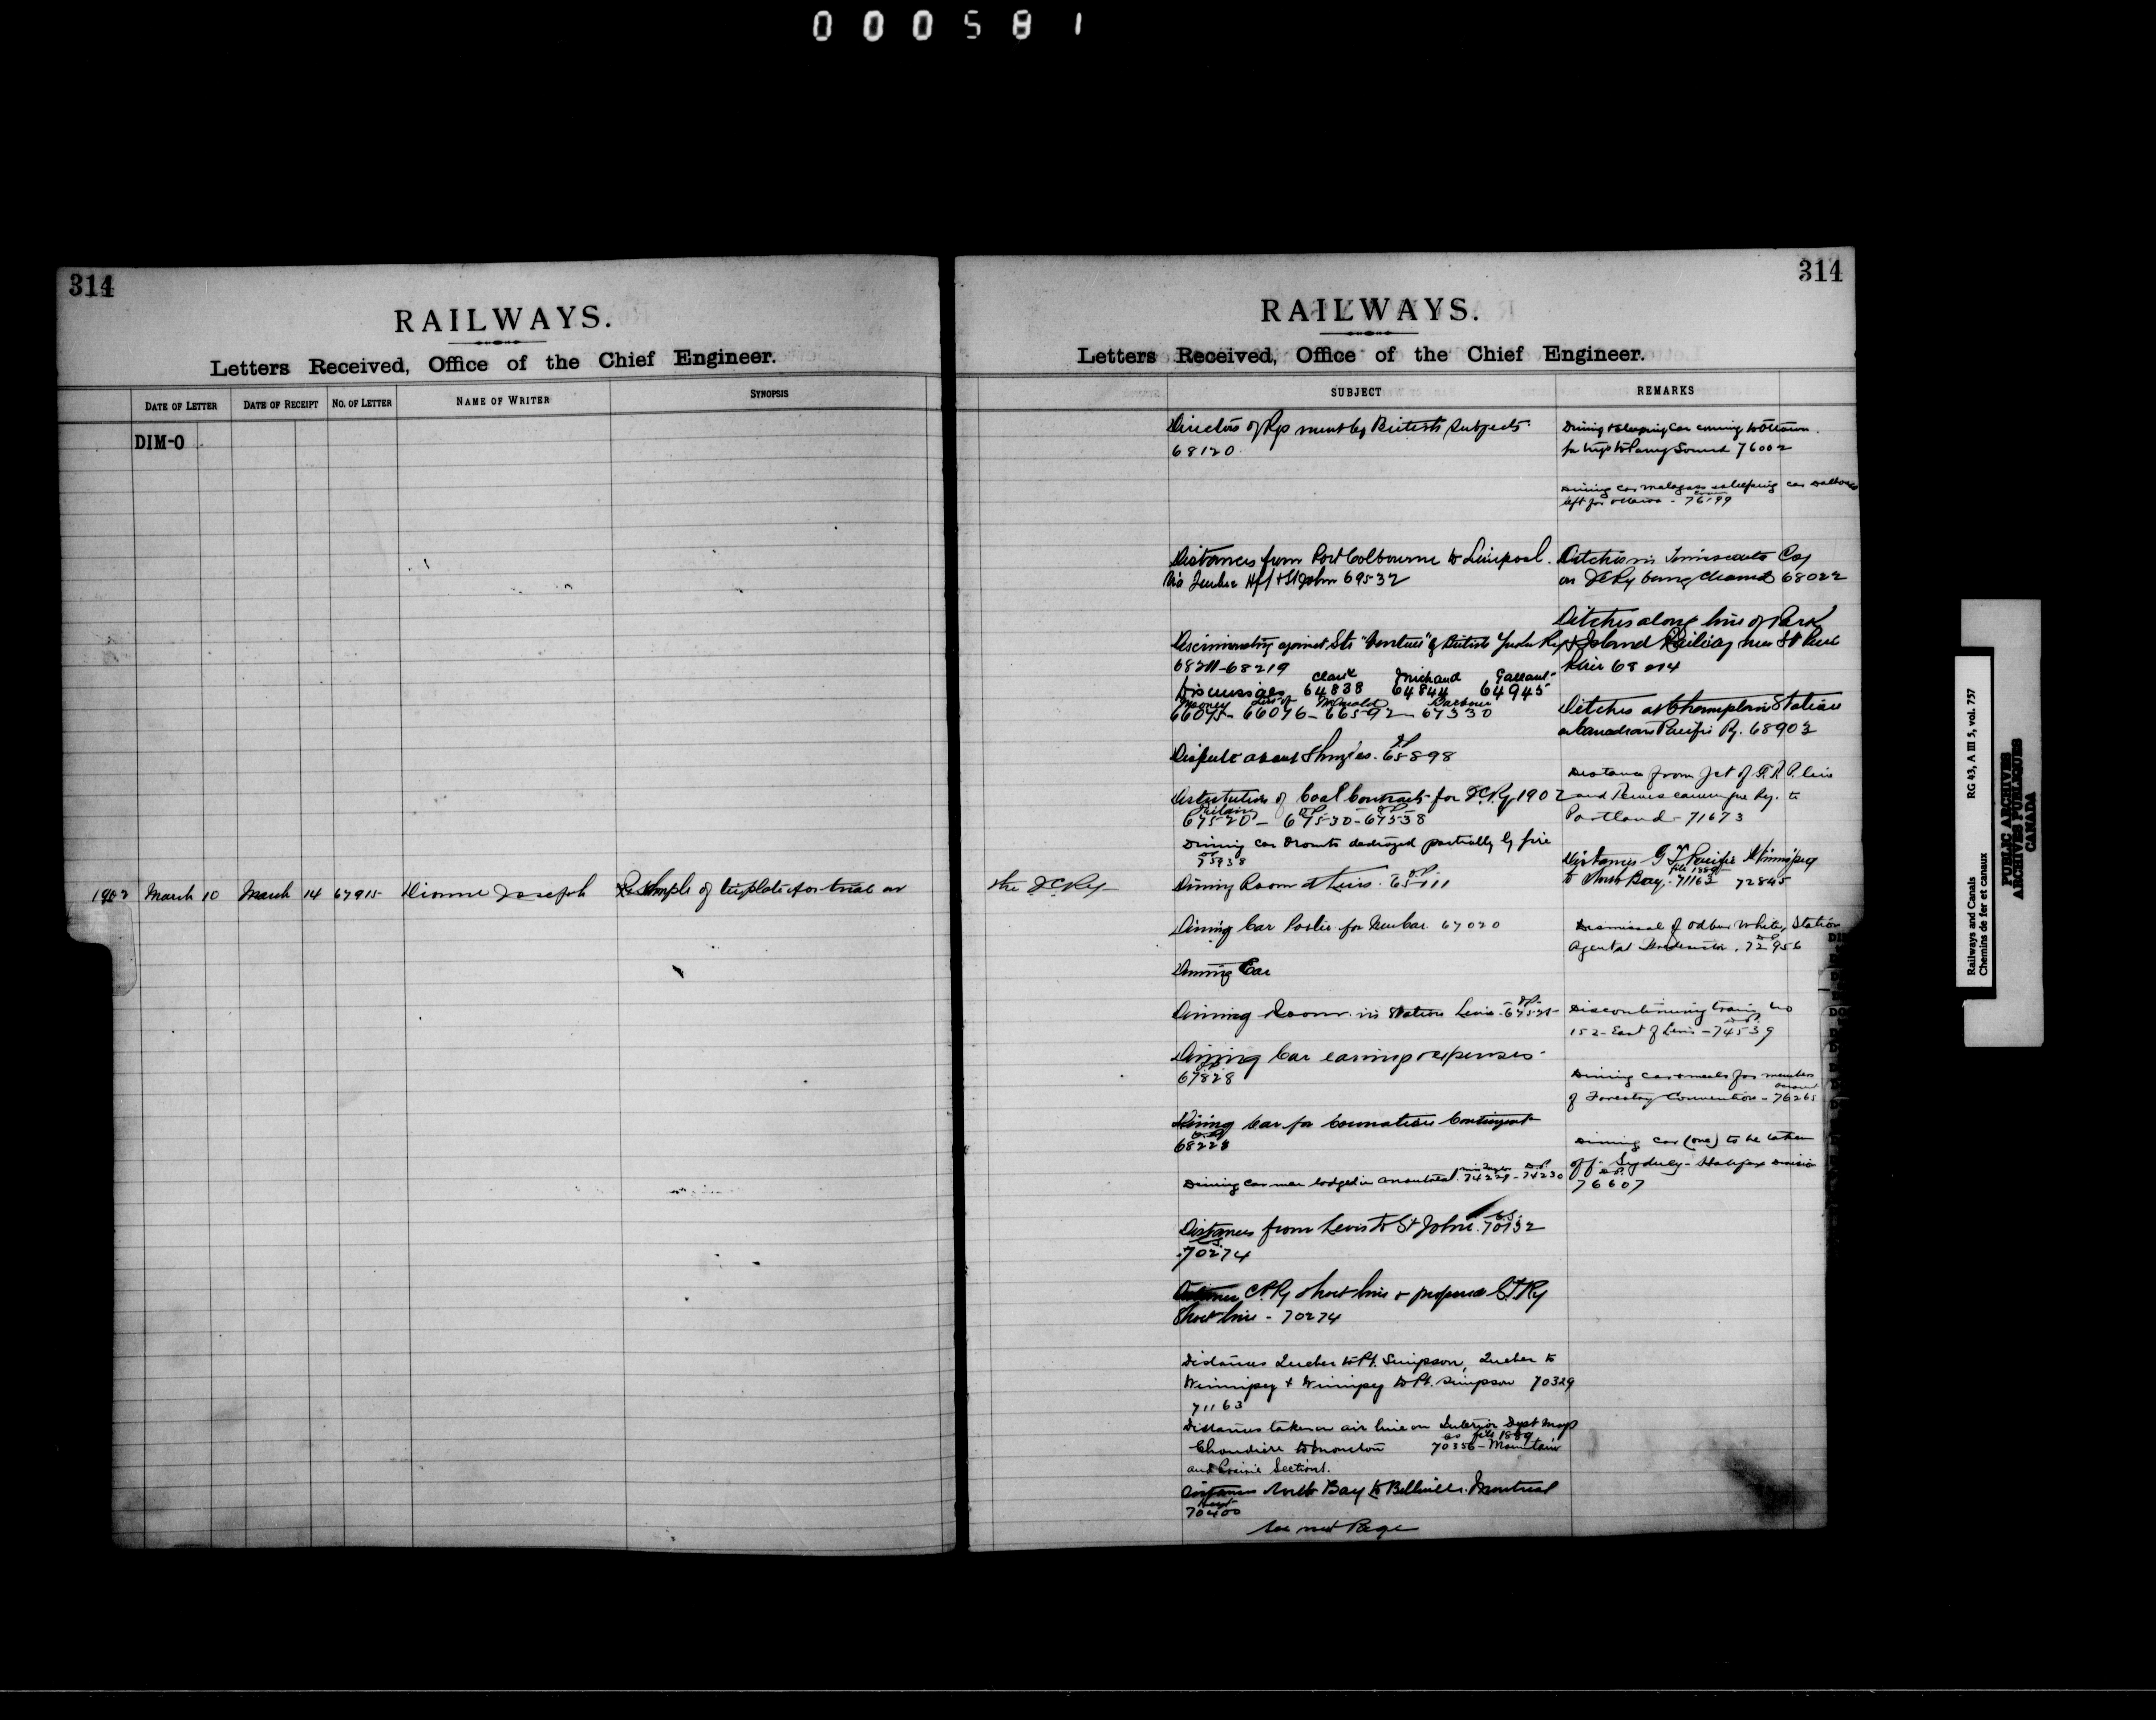 000581
314
RAILWAYS.
Letters Received, Office of the Chief Engineer.
DATE OF LETTER
DATE OF RECEIPT
NO. OF LETTER
NAME OF WRITER
SYNOPSIS
DIM-O
1902 March 10 March 14 67915 Dionne Joseph Re Sample of tieplate for trial on
314
RAILWAYS.
Letters Received, Office of the Chief Engineer.
SUBJECT
REMARKS
the ICRy
Directors of Rys must be British Subjects
68120
Distances from Port Colbourne to Liverpool.
Via Quebec Hfx & St John 69532
Discriminating against Str "Ventures" of British Yukon Ry
68211-68219
Clark Michaud Gallant
Dismissals 64838 64844 64945
Mooney McDonald Barbour
66075- 66076- 66592- 67330
Dispute about Shingles. 65898
Distribution of Coal Contracts for ICRy 1902
67520- 67530-67538
Dining car Toronto destroyed partially by fire
75938
Dining Room at Levis. 65111
Dining Car Poslie for New Car. 67020
Dining Car
Dining Room in Station Levis 67521
Dining Car earnings & expenses
67828
Dining Car for Coronation Contingent
68228
Dining car men lodged in Montreal. 74229-74230
Distances from Levis to St John. 70132
70274
Distance C.P.Ry Short line & proposed G.T.Ry
Short line - 70274
Distances Quebec to Pt. Simpson, Quebec to
Winnipeg & Winnipeg to Pt. Simpson 70329
71163
Distances taken on air line on Interior Dept map
as file 1889
Chaudiere to Moncton 70356- Mountain
and Prairie Sections.
Distances North Bay to Belleville. Montreal
70400
See next Page
Dining & Sleeping Car coming to Ottawa
for trip to Parry Sound 76002
Dining car Malagass & sleeping car Dalhousie
left for Ottawa - 76199
Ditches in Temiscouata Coy
on ICRy being cleaned 68022
Ditches along line of Park
& Island Railway near St Paul
Plair 68014
Ditches at Champlain Station
on Canadian Pacific Ry. 68903
Distance from Jct of G.T.P. line
and Temiscamingue Ry. to
Portland - 71673
Distances G T Pacific Winnipeg
file 1889
to North Bay. 71163 72845
Dismissal of Odbur White, Station
Agent at 72956
Discontinuing train No
152- East of Levis - 74539
Dining cars & meals for members
of Forestry Convention - 76265
Dining car (one) to be taken
off Sydney-Halifax Division
76607
Railways and Canals RG 43, A III 5, vol. 757
Chemins de fer et canaux
PUBLIC ARCHIVES
ARCHIVES PUBLIQUES
CANADA